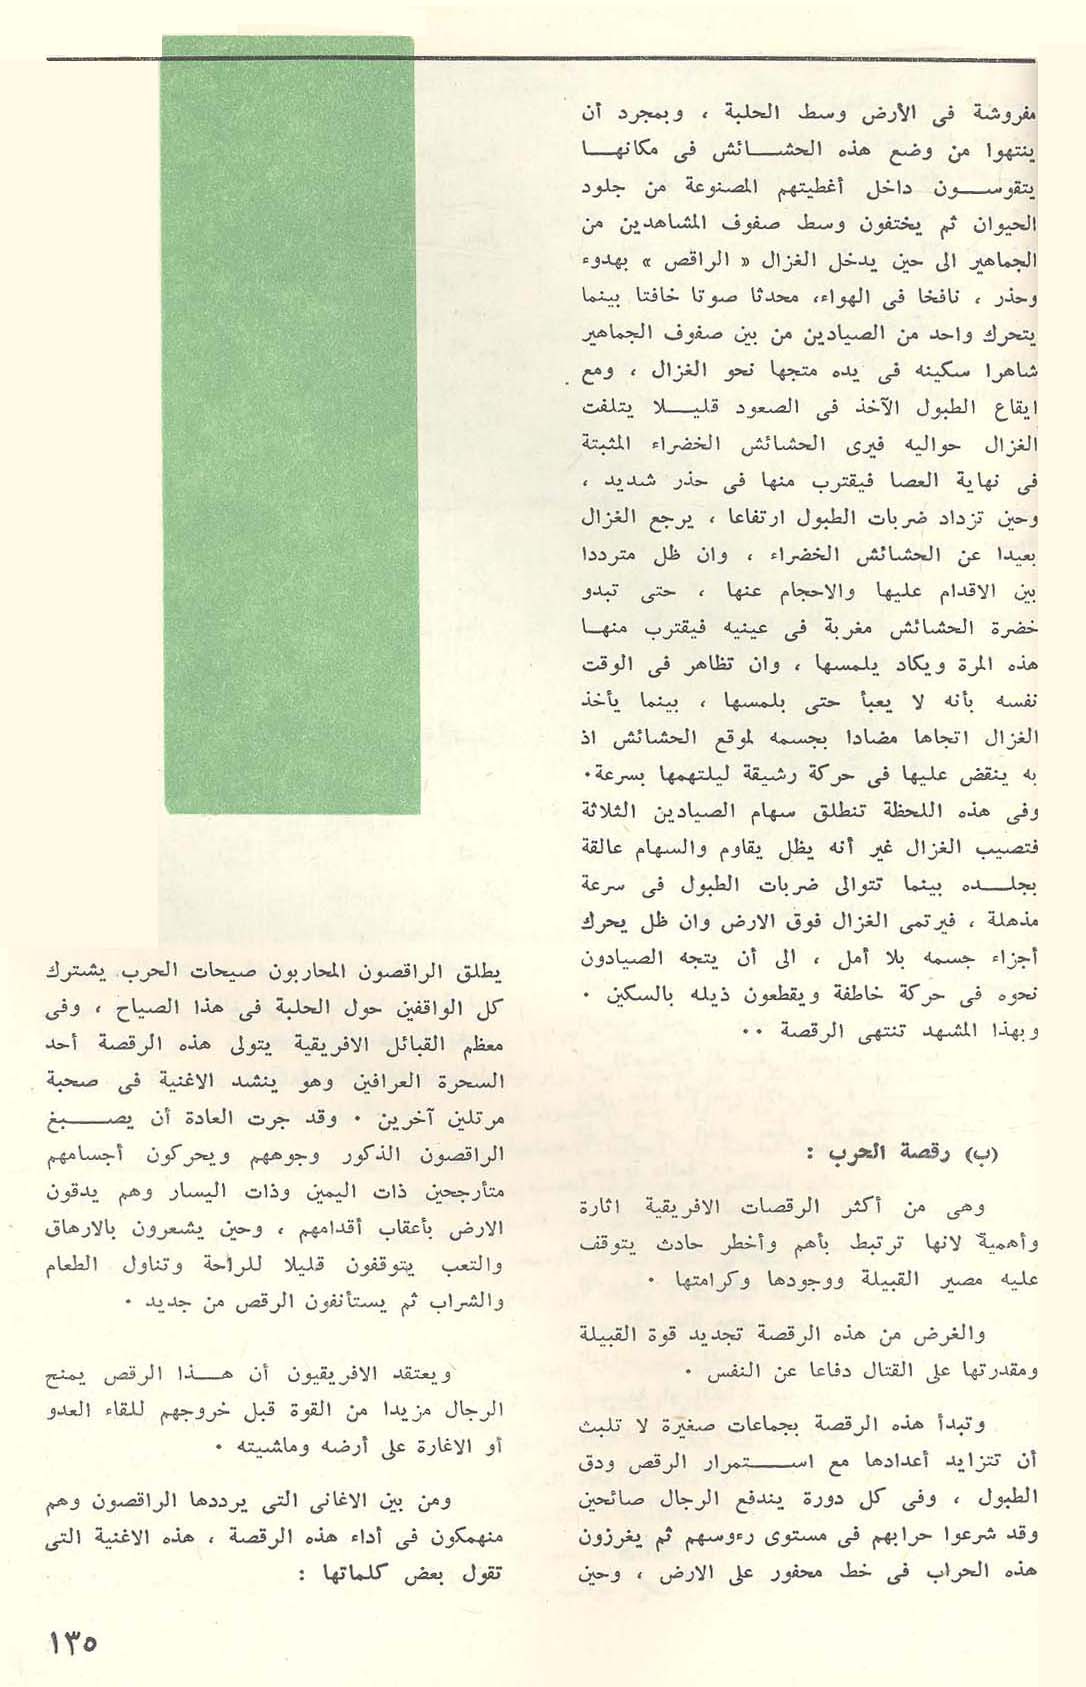 مفروشة فى الأرض وسط الحلبة ، وبمجرد أن
ينتهوا من وضع هذه الحشائش فى مكانها
يتقوسون داخل أغطيتهم المصنوعة من جلود
الحيوان ثم يختفون وسط صفوف المشاهدين من
الجماهير الى حين يدخل الغزال « الراقص » بهدوء
وحذر ، نافخا فى الهواء، محدثا صوتا خافتا بينما
يتحرك واحد من الصيادين من بين صفوف الجماهير
شاهرا سكينه فى يده متجها نحو الغزال ، ومع
ايقاع الطبول الآخذ فى الصعود قليلا يتلفت
الغزال حواليه فيرى الحشائش الخضراء المثبتة
فى نهاية العصا فيقترب منها فى حذر شديد ،
وحين تزداد ضربات الطبول ارتفاعا ، يرجع الغزال
بعيدا عن الحشائش الخضراء ، وان ظل مترددا
بين الاقدام عليها والاحجام عنها ، حتى تبدو
خضرة الحشائش مغرية فى عينيه فيقترب منها
هذه المرة ويكاد يلمسها ، وان تظاهر فى الوقت
نفسه بأنه لا يعبأ حتى بلمسها ، بينما يأخذ
الغزال اتجاها مضادا بجسمه لموقع الحشائش اذ
به ينقض عليها فى حركة رشيقة ليلتهمها بسرعة٠
وفى هذه اللحظة تنطلق سهام الصيادين الثلاثة
فتصيب الغزال غير أنه يظل يقاوم والسهام عالقة
بجلده بينما تتوالى ضربات الطبول فى سرعة
مذهلة ، فيرتمى الغزال فوق الارض وان ظل يحرك
أجزاء جسمه بلا أمل ، الى أن يتجه الصيادون
نحوه فى حركة خاطفة ويقطعون ذيله بالسكين ٠
وبهذا المشهد تنتهى الرقصة ٠٠
(ب) رقصة الحرب :
وهى من أكثر الرقصات الافريقية اثارة
وأهمية لانها ترتبط بأهم وأخطر حادث يتوقف
عليه مصير القبيلة ووجودها وكرامتها ٠
والغرض من هذه الرقصة تجديد قوة القبيلة
ومقدرتها على القتال دفاعا عن النفس ٠
وتبدأ هذه الرقصة بجماعات صغيرة لا تلبث
أن تتزايد أعدادها مع استمرار الرقص ودق
الطبول ، وفى كل دورة يندفع الرجال صائحين
وقد شرعوا حرابهم فى مستوى رءوسهم ثم يغرزون
هذه الحراب فى خط محفور على الارض ، وحين
يطلق الراقصون المحاربون صيحات الحرب يشترك
كل الواقفين حول الحلبة فى هذا الصياح ، وفى
معظم القبائل الافريقية يتولى هذه الرقصة أحد
السحرة العرافين وهو ينشد الاغنية فى صحبة
مرتلين آخرين ٠ وقد جرت العادة أن يصبغ
الراقصون الذكور وجوههم ويحركون أجسامهم
متأرجحين ذات اليمين وذات اليسار وهم يدقون
الارض بأعقاب أقدامهم ، وحين يشعرون بالارهاق
والتعب يتوقفون قليلا للراحة وتناول الطعام
والشراب ثم يستأنفون الرقص من جديد ٠
ويعتقد الافريقيون أن هذا الرقص يمنح
الرجال مزيدا من القوة قبل خروجهم للقاء العدو
أو الاغارة على أرضه وماشيته ٠
ومن بين الاغانى التى يرددها الراقصون وهم
منهمكون فى أداء هذه الرقصة ، هذه الاغنية التى
تقول بعض كلماتها :
١٣٥